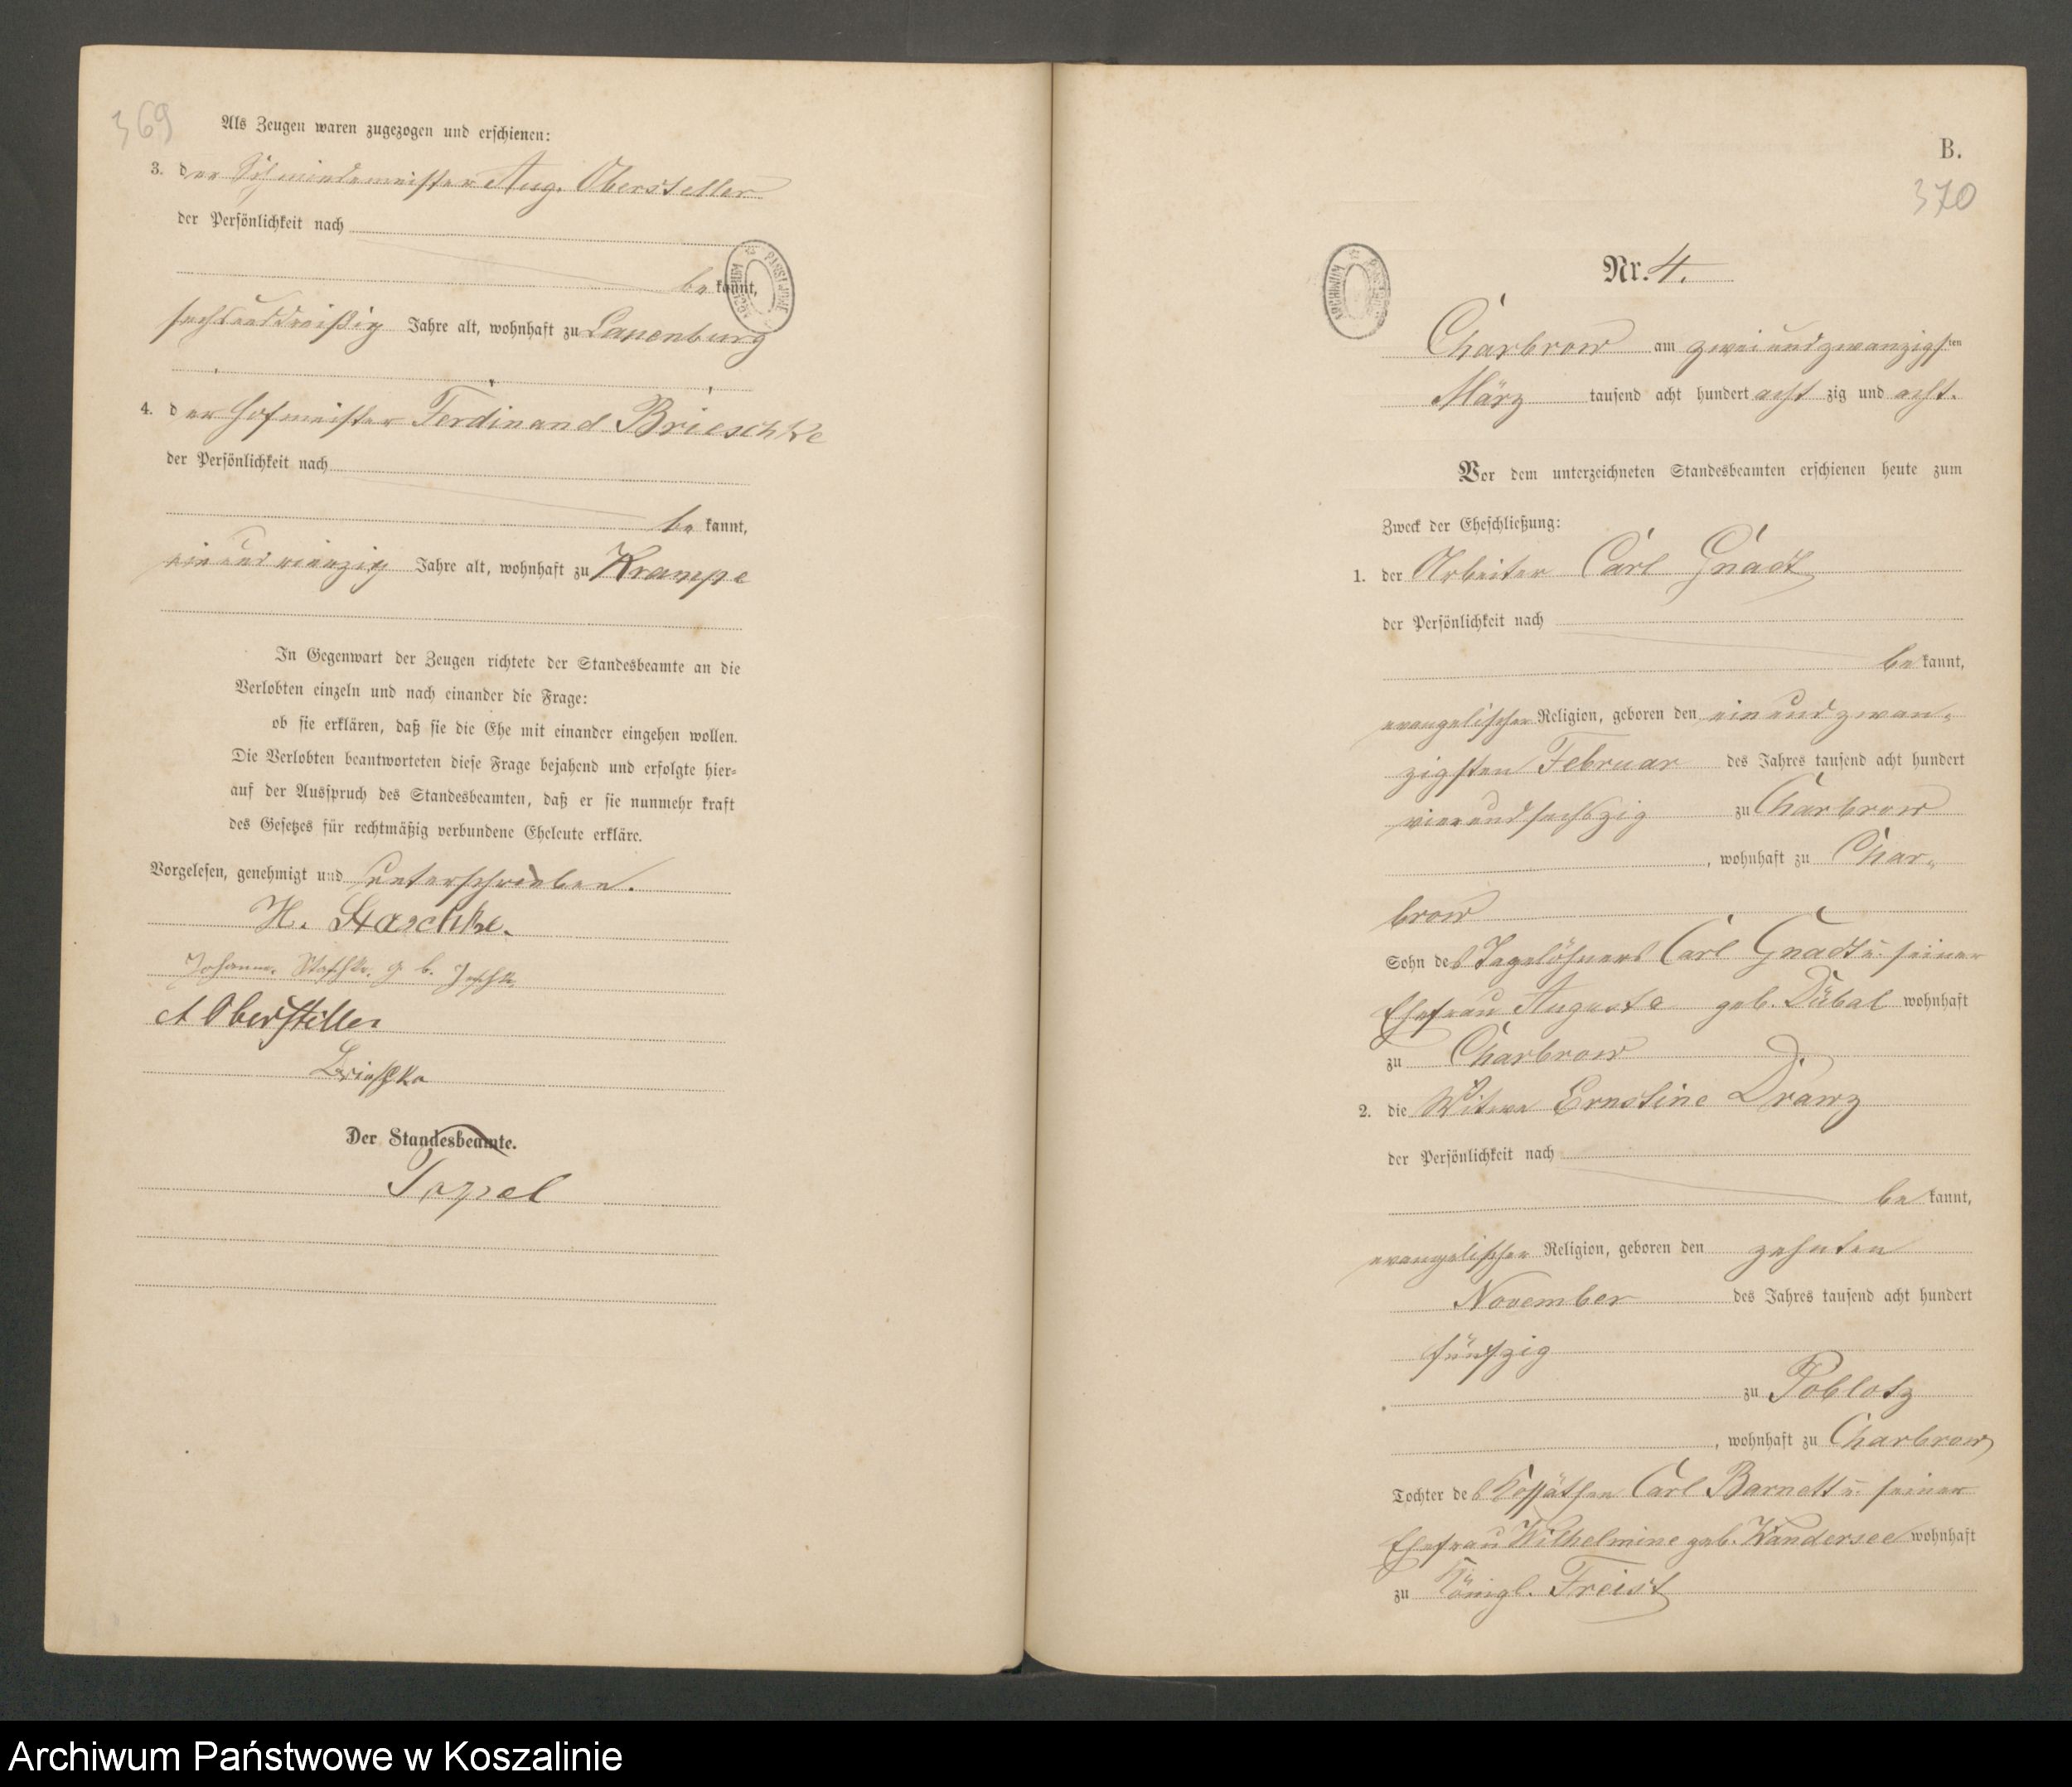 369
Als Zeugen waren zugezogen und erschienen:
3. der Schmiedemeister Aug. Obersteller
der Persönlichkeit nach
be kannt,
sechsunddreißig Jahre alt, wohnhaft zu Lauenburg
4. der Hofmeister Ferdinand Brieschke
der Persönlichkeit nach
be kannt,
ein und vierzig Jahre alt, wohnhaft zu Krampe
In Gegenwart der Zeugen richtete der Standesbeamte an die
Verlobten einzeln und nach einander die Frage:
ob sie erklären, daß sie die Ehe mit einander eingehen wollen.
Die Verlobten beantworteten diese Frage bejahend und erfolgte hier-
auf der Ausspruch des Standesbeamten, daß er sie nunmehr kraft
des Gesetzes für rechtmäßig verbundene Eheleute erkläre.
Vorgelesen, genehmigt und unterschrieben.
H. Staschke.
A Obersteller
Brieschke
Der Standesbeamte.
B.
370
ARCHIWUM
Nr. 4.
Charbrow am zwei und zwanzigsten
März tausend acht hundert acht zig und acht.
Vor dem unterzeichneten Standesbeamten erschienen heute zum
Zweck der Eheschließung:
1. der Arbeiter Carl Gnadt
der Persönlichkeit nach
be kannt,
evangelischer Religion, geboren den ein und zwan-
zigsten Februar des Jahres tausend acht hundert
vier und sechszig zu Charbrow
, wohnhaft zu Char-
brow
Sohn des Tagelöhners Carl Gnadt u. seiner
Ehefrau Augusta geb. Dübal wohnhaft
zu Charbrow
2. die Witwe Ernestine Drawz
der Persönlichkeit nach
be kannt,
evangelischer Religion, geboren den zehnten
November des Jahres tausend acht hundert
fünfzig
zu Poblotz
, wohnhaft zu Charbrow
Tochter des Kossäthen Carl Barnett u. seiner
Ehefrau Wilhelmine geb. Wandersee wohnhaft
zu Königl. Freist
Archiwum Państwowe w Koszalinie